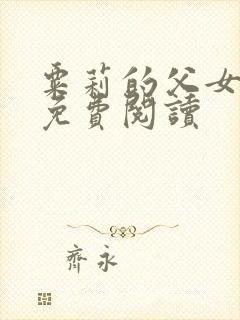 粟莉的父女
免費閱讀
齊永